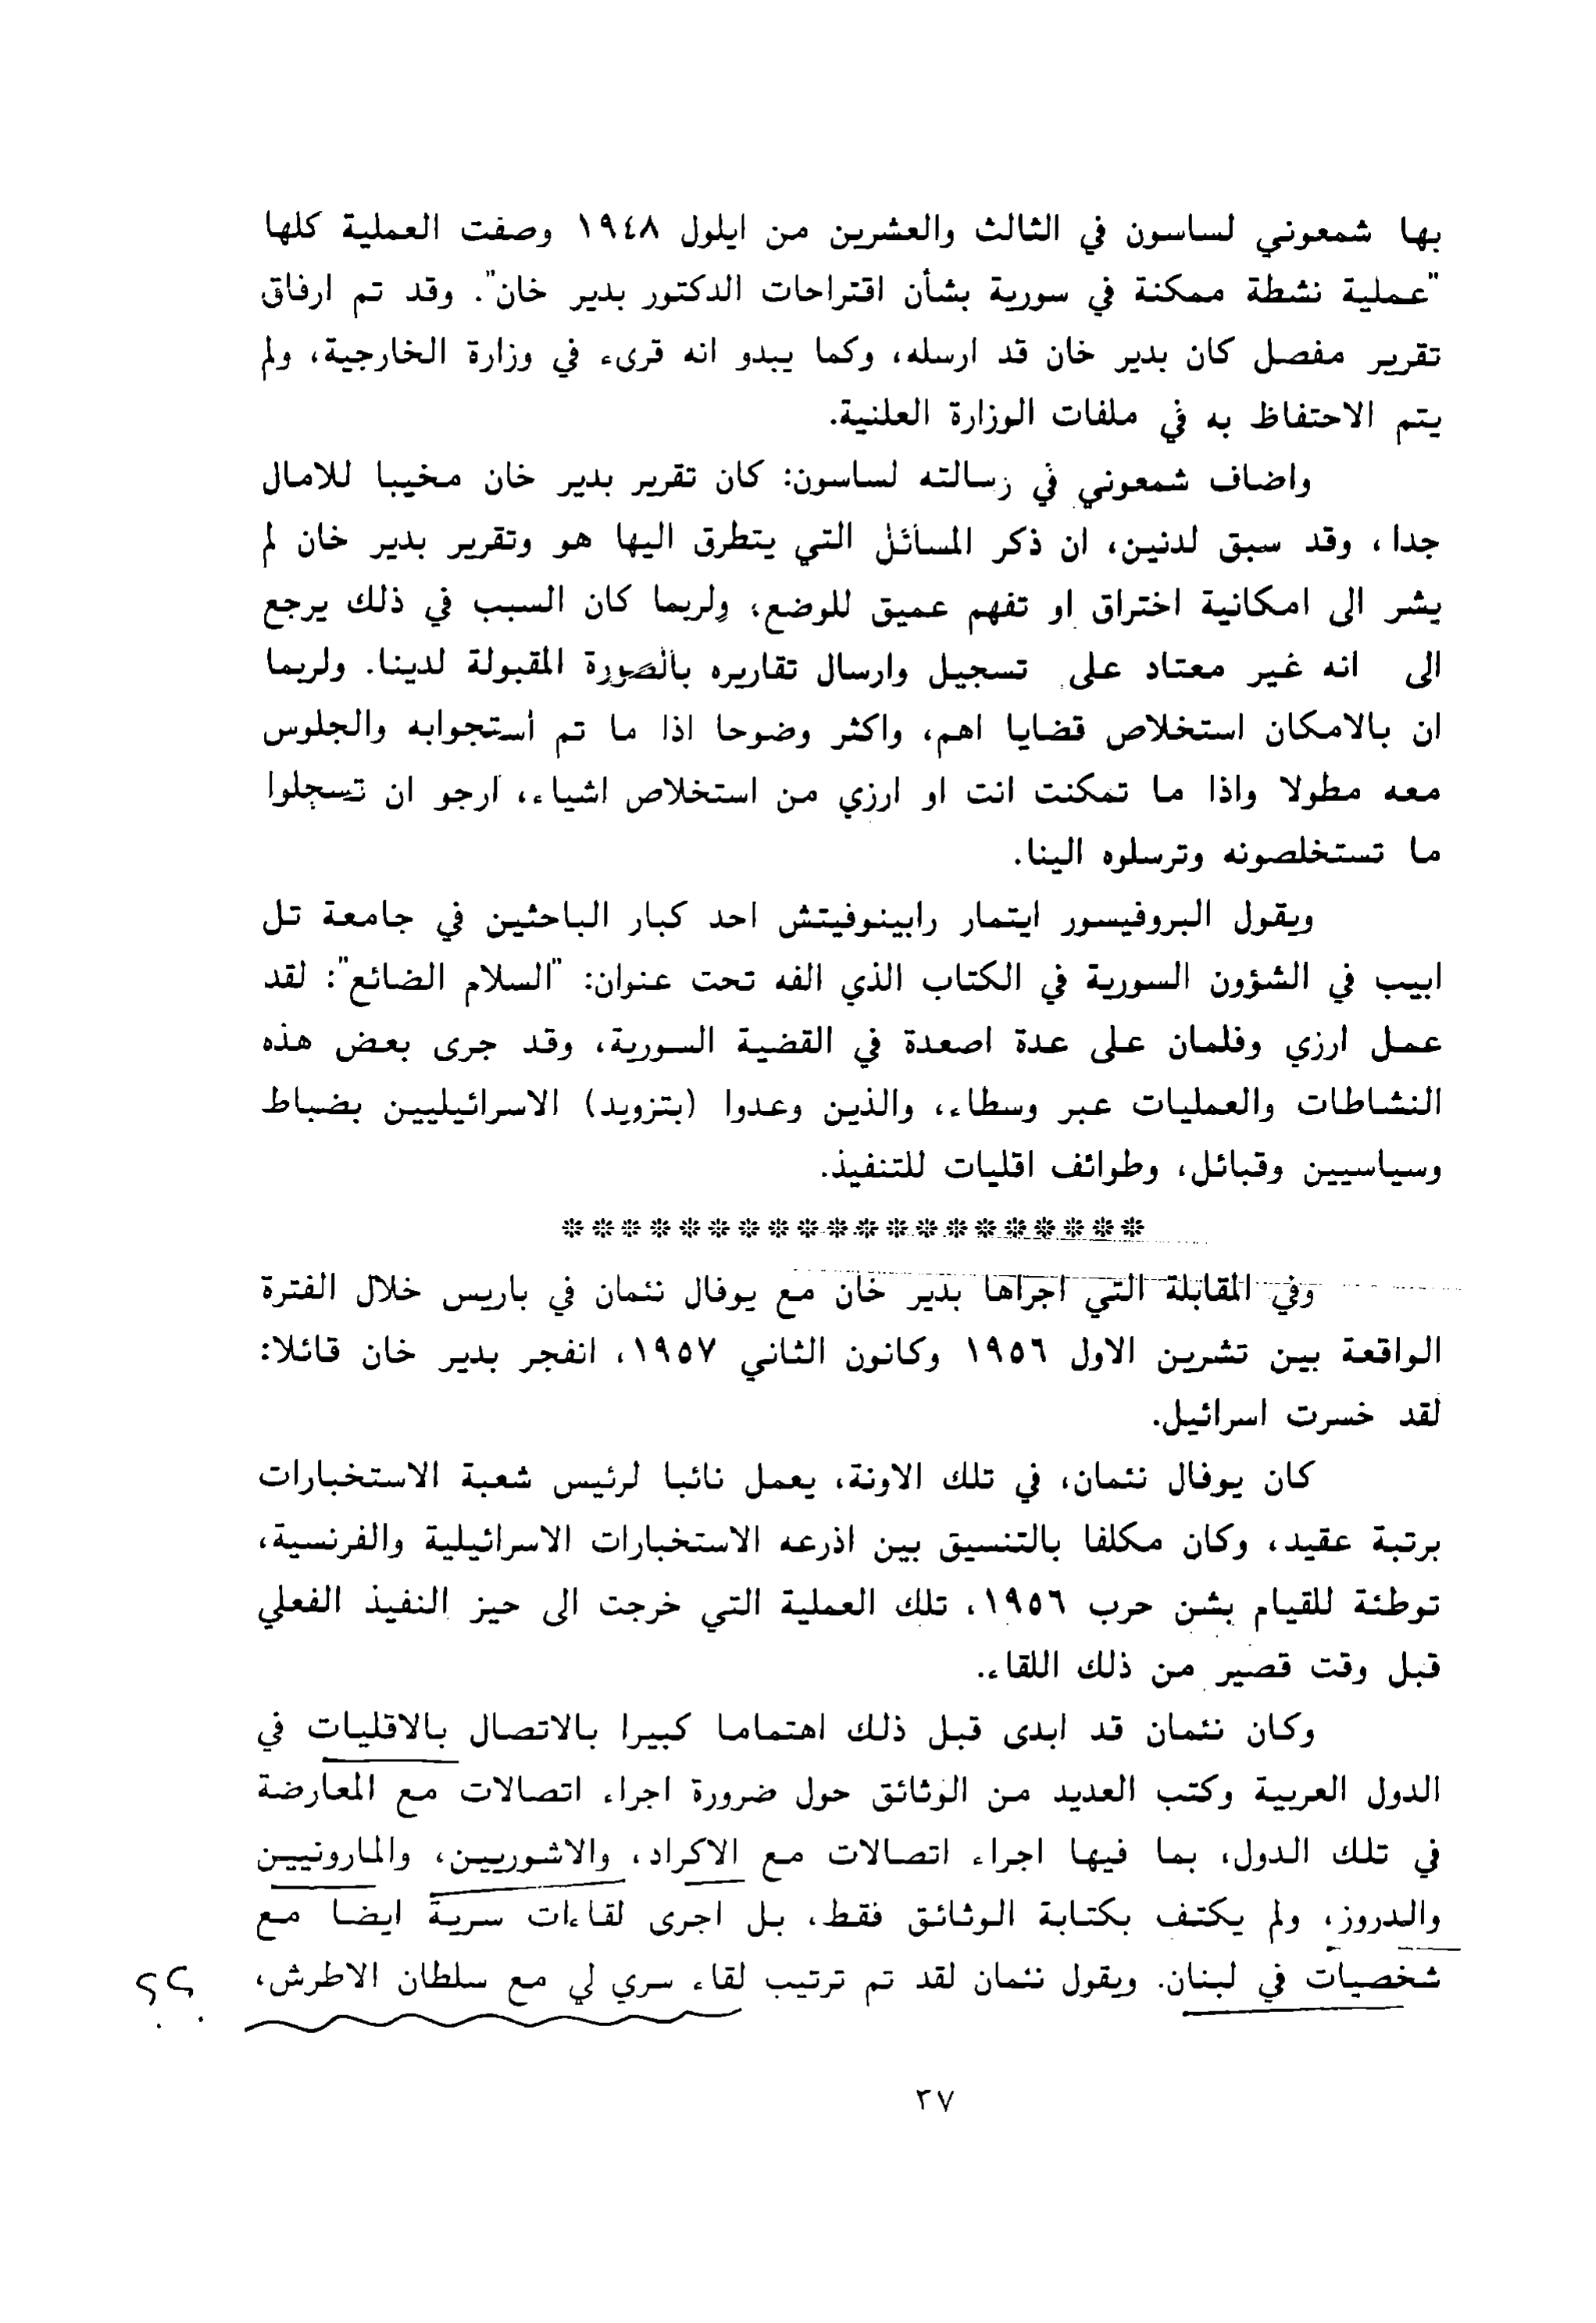 بها شمعوني لساسون في الثالث والعشرين من ايلول ١٩٤٨ وصفت العملية كلها
"عملية نشطة ممكنة في سورية بشأن اقتراحات الدكتور بدير خان". وقد تم ارفاق
تقرير مفصل كان بدير خان قد ارسله، وكما يبدو انه قرىء في وزارة الخارجية، ولم
يتم الاحتفاظ به في ملفات الوزارة العلنية.
واضاف شمعوني في رسالته لساسون: كان تقرير بدير خان مخيبا للامال
جدا، وقد سبق لدنين، ان ذكر المسائل التي يتطرق اليها هو وتقرير بدير خان لم
يشر الى امكانية اختراق او تفهم عميق للوضع، ولربما كان السبب في ذلك يرجع
الى انه غير معتاد على تسجيل وارسال تقاريره بالصورة المقبولة لدينا. ولربما
ان بالامكان استخلاص قضايا اهم، واكثر وضوحا اذا ما تم استجوابه والجلوس
معه مطولا واذا ما تمكنت انت او ارزي من استخلاص اشياء، ارجو ان تسجلوا
ما تستخلصونه وترسلوه الينا.
ويقول البروفيسور ايتمار رابينوفيتش احد كبار الباحثين في جامعة تل
ابيب في الشؤون السورية في الكتاب الذي الفه تحت عنوان: "السلام الضائع": لقد
عمل ارزي وفلمان على عدة اصعدة في القضية السورية، وقد جرى بعض هذه
النشاطات والعمليات عبر وسطاء، والذين وعدوا (بتزويد) الاسرائيليين بضباط
وسياسيين وقبائل، وطوائف اقليات للتنفيذ.
❊ ❊ ❊ ❊ ❊ ❊ ❊ ❊ ❊ ❊ ❊ ❊ ❊ ❊ ❊ ❊ ❊ ❊ ❊ ❊
وفي المقابلة التي اجراها بدير خان مع يوفال نئمان في باريس خلال الفترة
الواقعة بين تشرين الاول ١٩٥٦ وكانون الثاني ١٩٥٧، انفجر بدير خان قائلا:
لقد خسرت اسرائيل.
كان يوفال نئمان، في تلك الاونة، يعمل نائبا لرئيس شعبة الاستخبارات
برتبة عقيد، وكان مكلفا بالتنسيق بين اذرعه الاستخبارات الاسرائيلية والفرنسية،
توطئة للقيام بشن حرب ١٩٥٦، تلك العملية التي خرجت الى حيز النفيذ الفعلي
قبل وقت قصير من ذلك اللقاء.
وكان نئمان قد ابدى قبل ذلك اهتماما كبيرا بالاتصال بالاقليات في
الدول العربية وكتب العديد من الوثائق حول ضرورة اجراء اتصالات مع المعارضة
في تلك الدول، بما فيها اجراء اتصالات مع الاكراد، والاشوريين، والمارونيين
والدروز، ولم يكتف بكتابة الوثائق فقط، بل اجرى لقاءات سرية ايضا مع
شخصيات في لبنان. ويقول نئمان لقد تم ترتيب لقاء سري لي مع سلطان الاطرش،
؟؟
٢٧